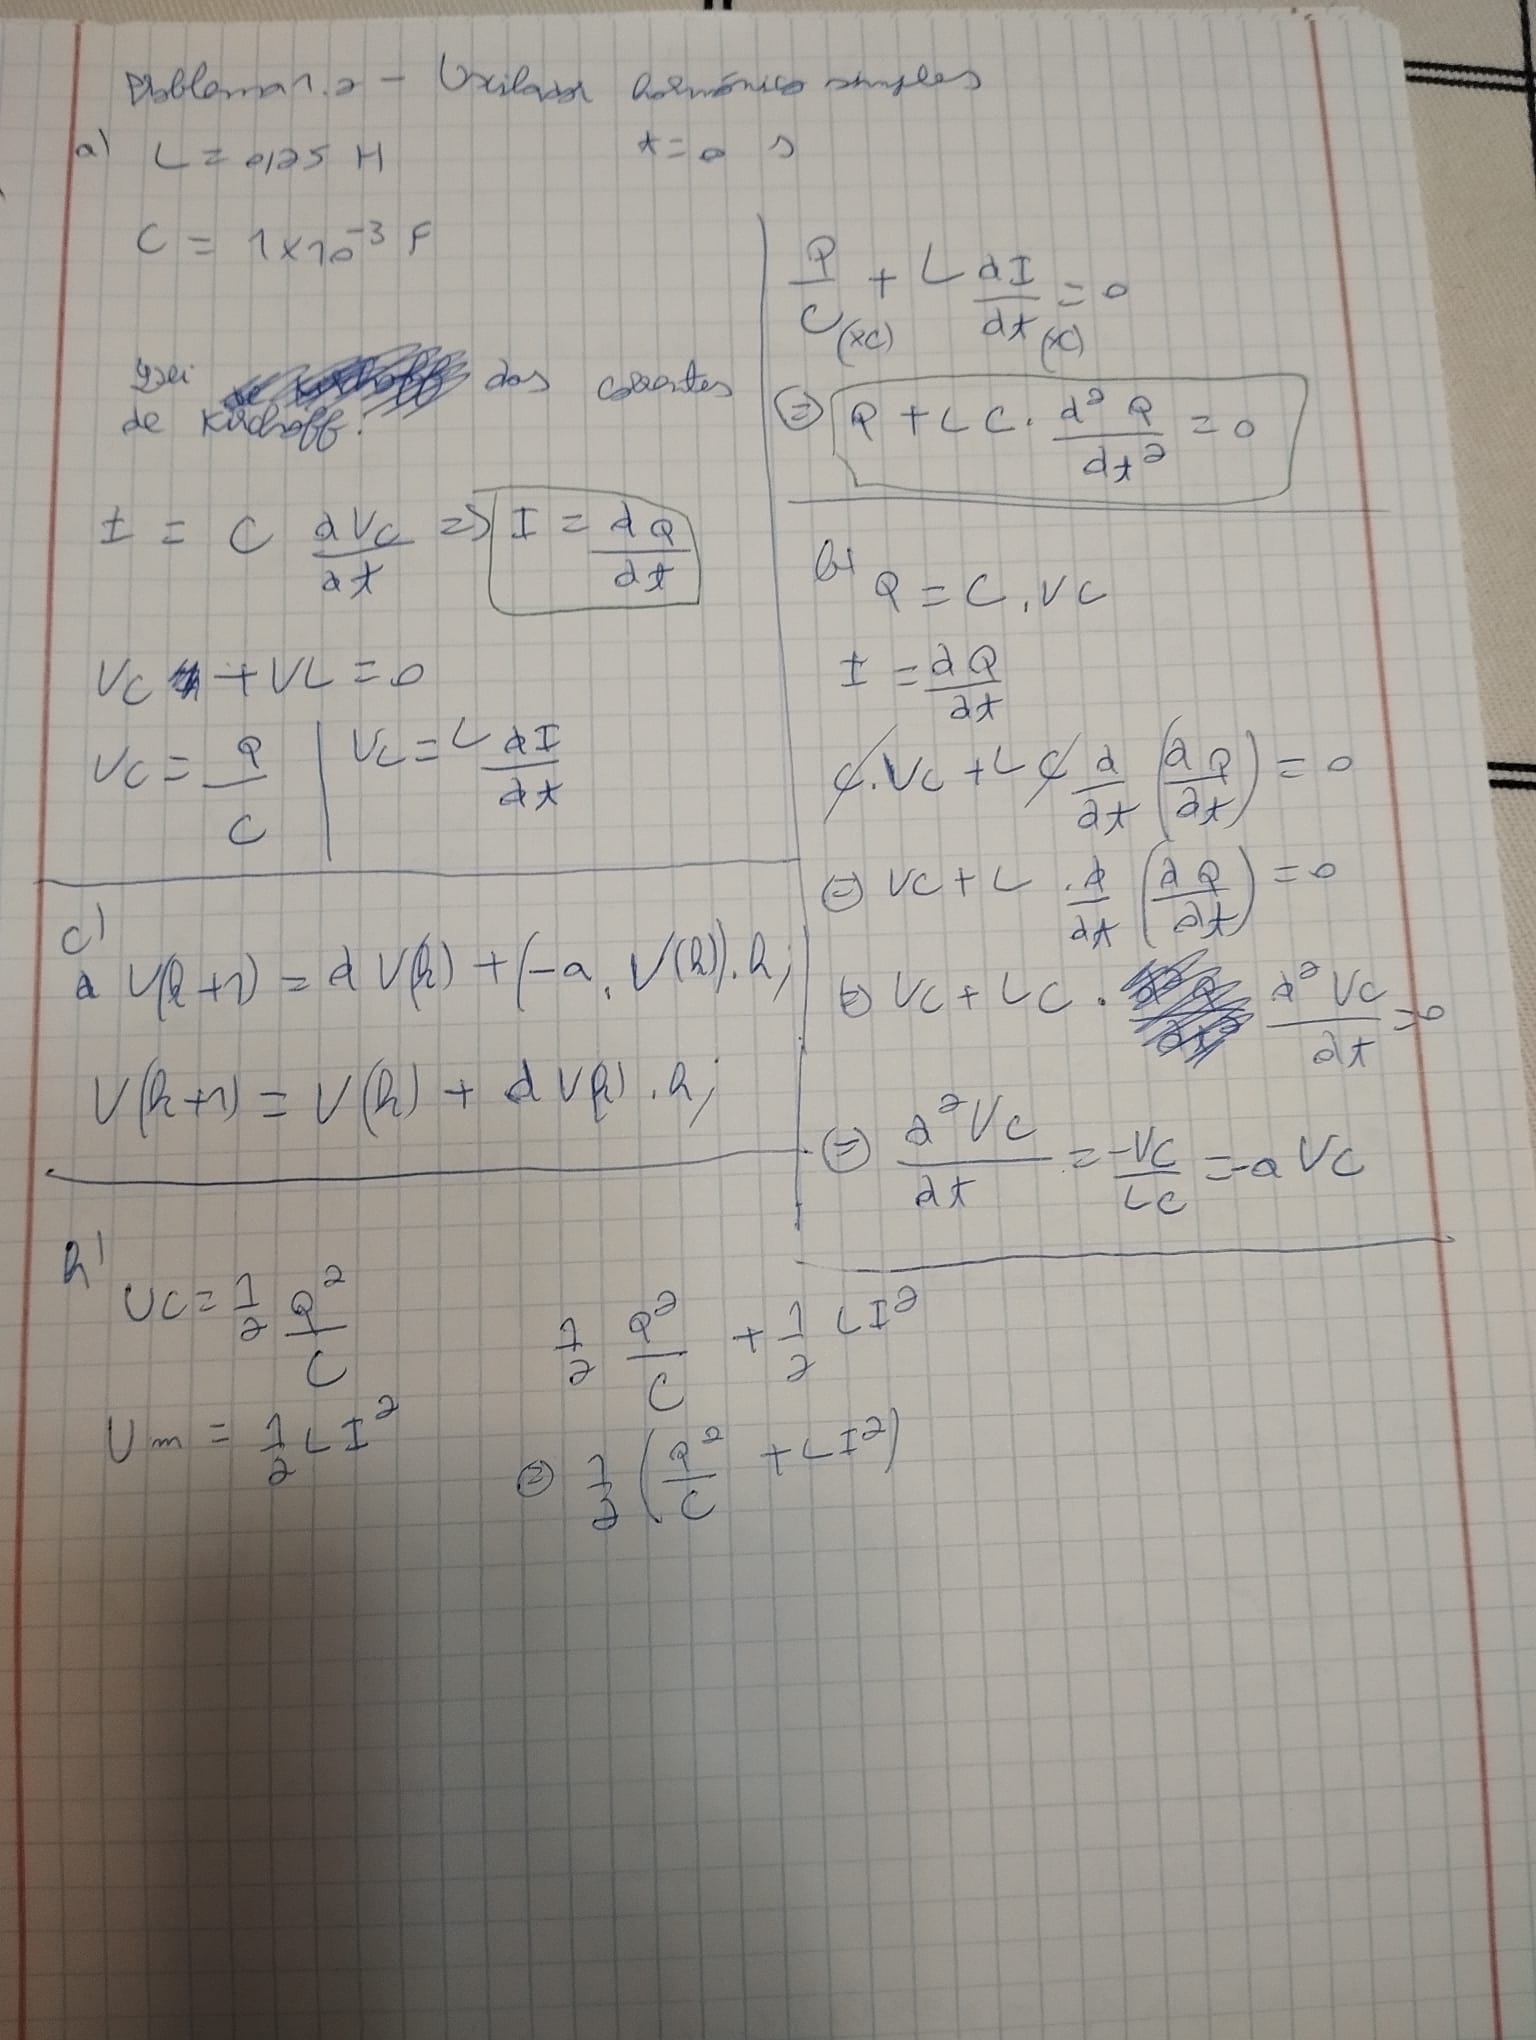 Problema 1.2 - Oscilador harmónico simples
a) L = 0,25 H t = 0 s
C = 1×10⁻³ F
Lei das correntes
de Kirchoff.
I = C dVc/dt => I = dQ/dt
Vc + VL = 0
Vc = Q/C | VL = L dI/dt
Q/C (×C) + L dI/dt (×C) = 0
(=) Q + LC . d²Q/dt² = 0
b) Q = C . Vc
I = dQ/dt
C . Vc + L C d/dt (dQ/dt) = 0
(=) Vc + L . d/dt (dQ/dt) = 0
(=) Vc + LC . d²Vc/dt = 0
(=) d²Vc/dt = -Vc/LC = -a Vc
c)
dV(k+1) = dV(k) + (-a . V(k)) . h;
V(k+1) = V(k) + dV(k) . h;
h)
Uc = 1/2 Q²/C
Um = 1/2 LI²
1/2 Q²/C + 1/2 LI²
(=) 1/2 (Q²/C + LI²)